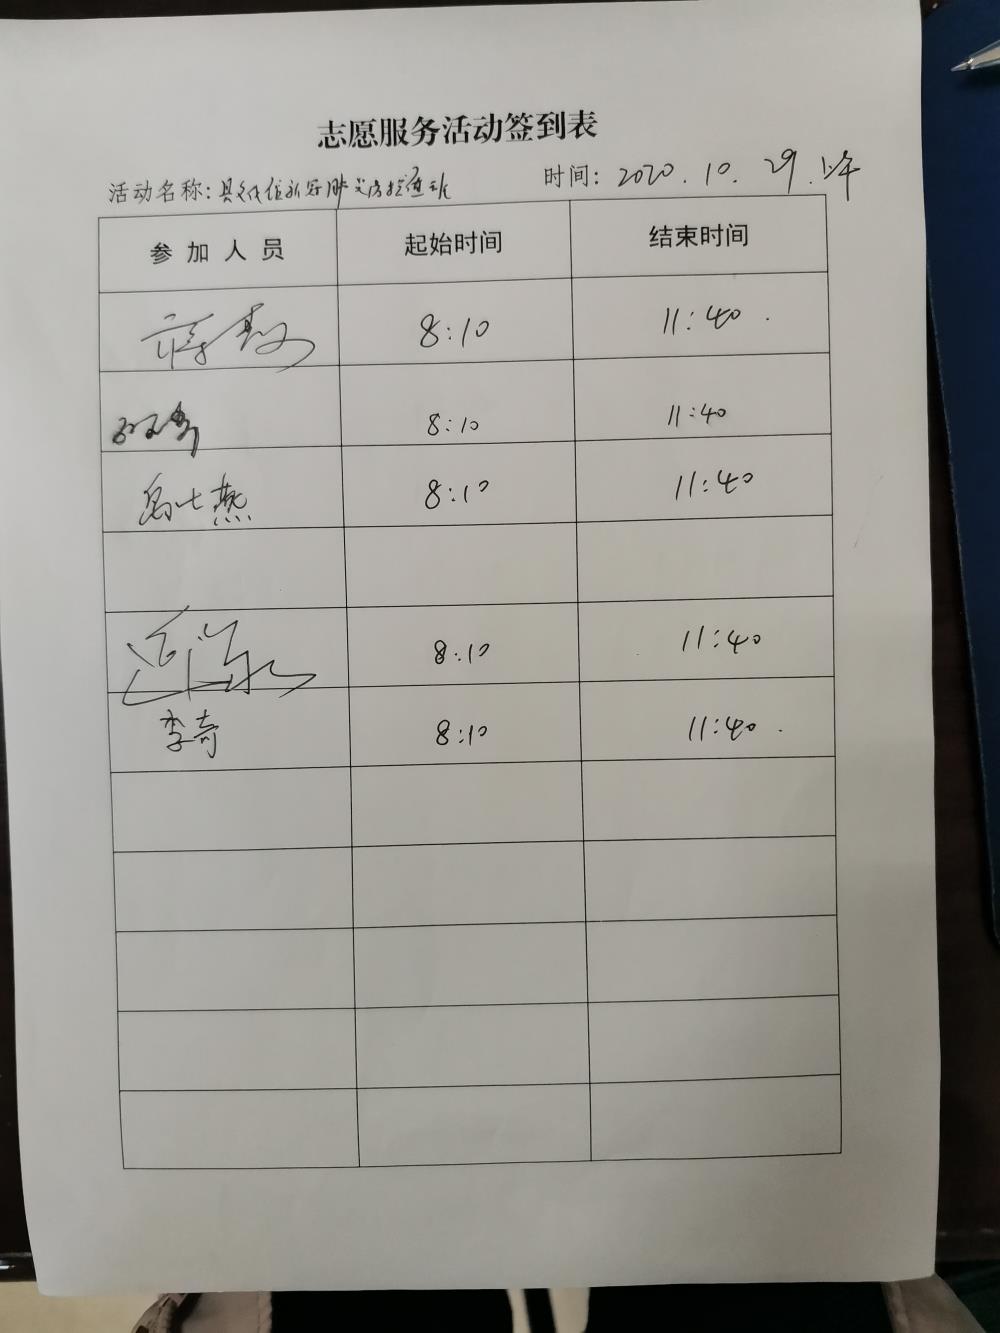 志愿服务活动签到表
活动名称: 新冠肺炎防控 时间: 2020.10.29.上午
参加人员 起始时间 结束时间
8:10 11:40
8:10 11:40
燕 8:10 11:40
8:10 11:40
李奇 8:10 11:40